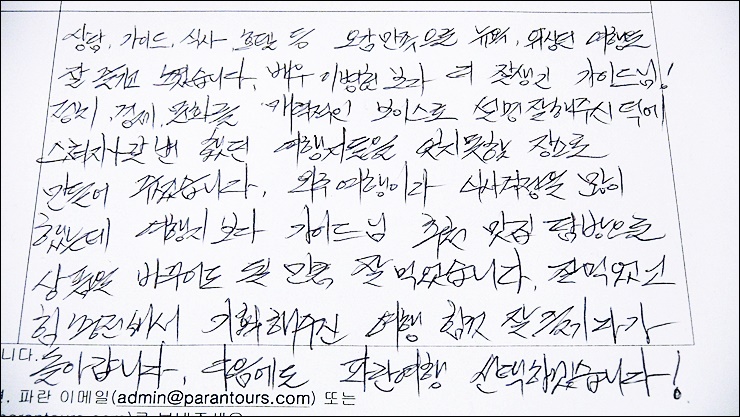 상담, 가이드, 식사 호텔 등 오감만족으로 뉴욕, 워싱턴 여행을
잘 즐겼습니다. 배우 이병헌 보다 더 잘생긴 가이드님!
정치, 경제, 문화를 매력적인 보이스로 설명 잘해주신 덕에
스쳐지나갈 뻔 했던 여행지들을 잊지못할 장소로
만들어 주셨습니다. 미주여행이라 식사걱정을 많이
했는데 여행지 보다 가이드님 추천 맛집 탐방으로
상품을 바꾸어도 될 만큼 잘 먹었습니다. 잘먹었고
힘 기획해주신 여행 힘껏 잘 즐기다가
돌아갑니다. 다음에도 파란여행 선택하겠습니다!
니다.
파란 이메일(admin@parantours.com) 또는